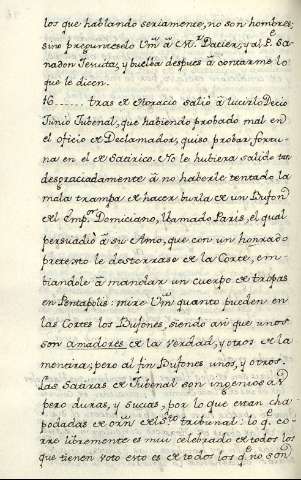 los que hablando seriamente, no son hombres;
sino pregunteselo Vm̃ â Mr. Dacier, y al Pe. Sa-
nadon Jesuita, y buelba despues â contarme lo
que le dicen.
16 ...... tras de Horacio salió â lucirlo Decio
Junio Jubenal, que habiendo probado mal en
el oficio de Declamador, quiso probar fortu-
na en el de Satirico. No le hubiera salido tan
desgraciadamente â no haberle tentado la
mala trampa de hacer burla de un Bufon
del Empr. Domiciano, llamado Paris, el qual
persuadió â su Amo, que con un honrado
pretexto le desterrase de la Corte, em-
biandole â mandar un cuerpo de tropas
en Pentapolis: mire Vm̃ quanto pueden en
las Cortes los Bufones, siendo asi que unos
son amadores de la verdad, y otros de la
mentira; pero al fin Bufones unos, y otros.
Las Satiras de Jubenal son ingeniosas
pero duras, y sucias, por lo que estan cha-
podadas de orñ del Sto. tribunal: lo q̃. co-
rre libremente es mui celebrado de todos los
que tienen voto esto es de todos los q̃. no son